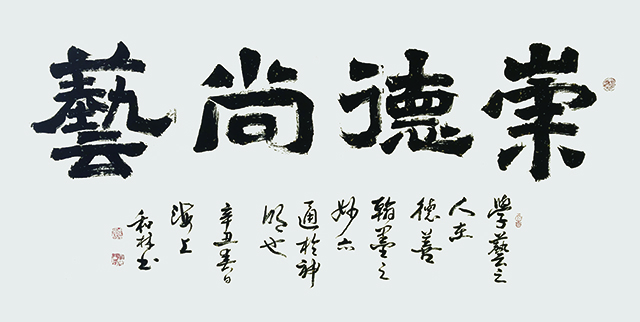 崇德尚藝
學藝之
人在
德善
翰墨之
妙亦
通於神
明也
辛丑春日
海上
和林书